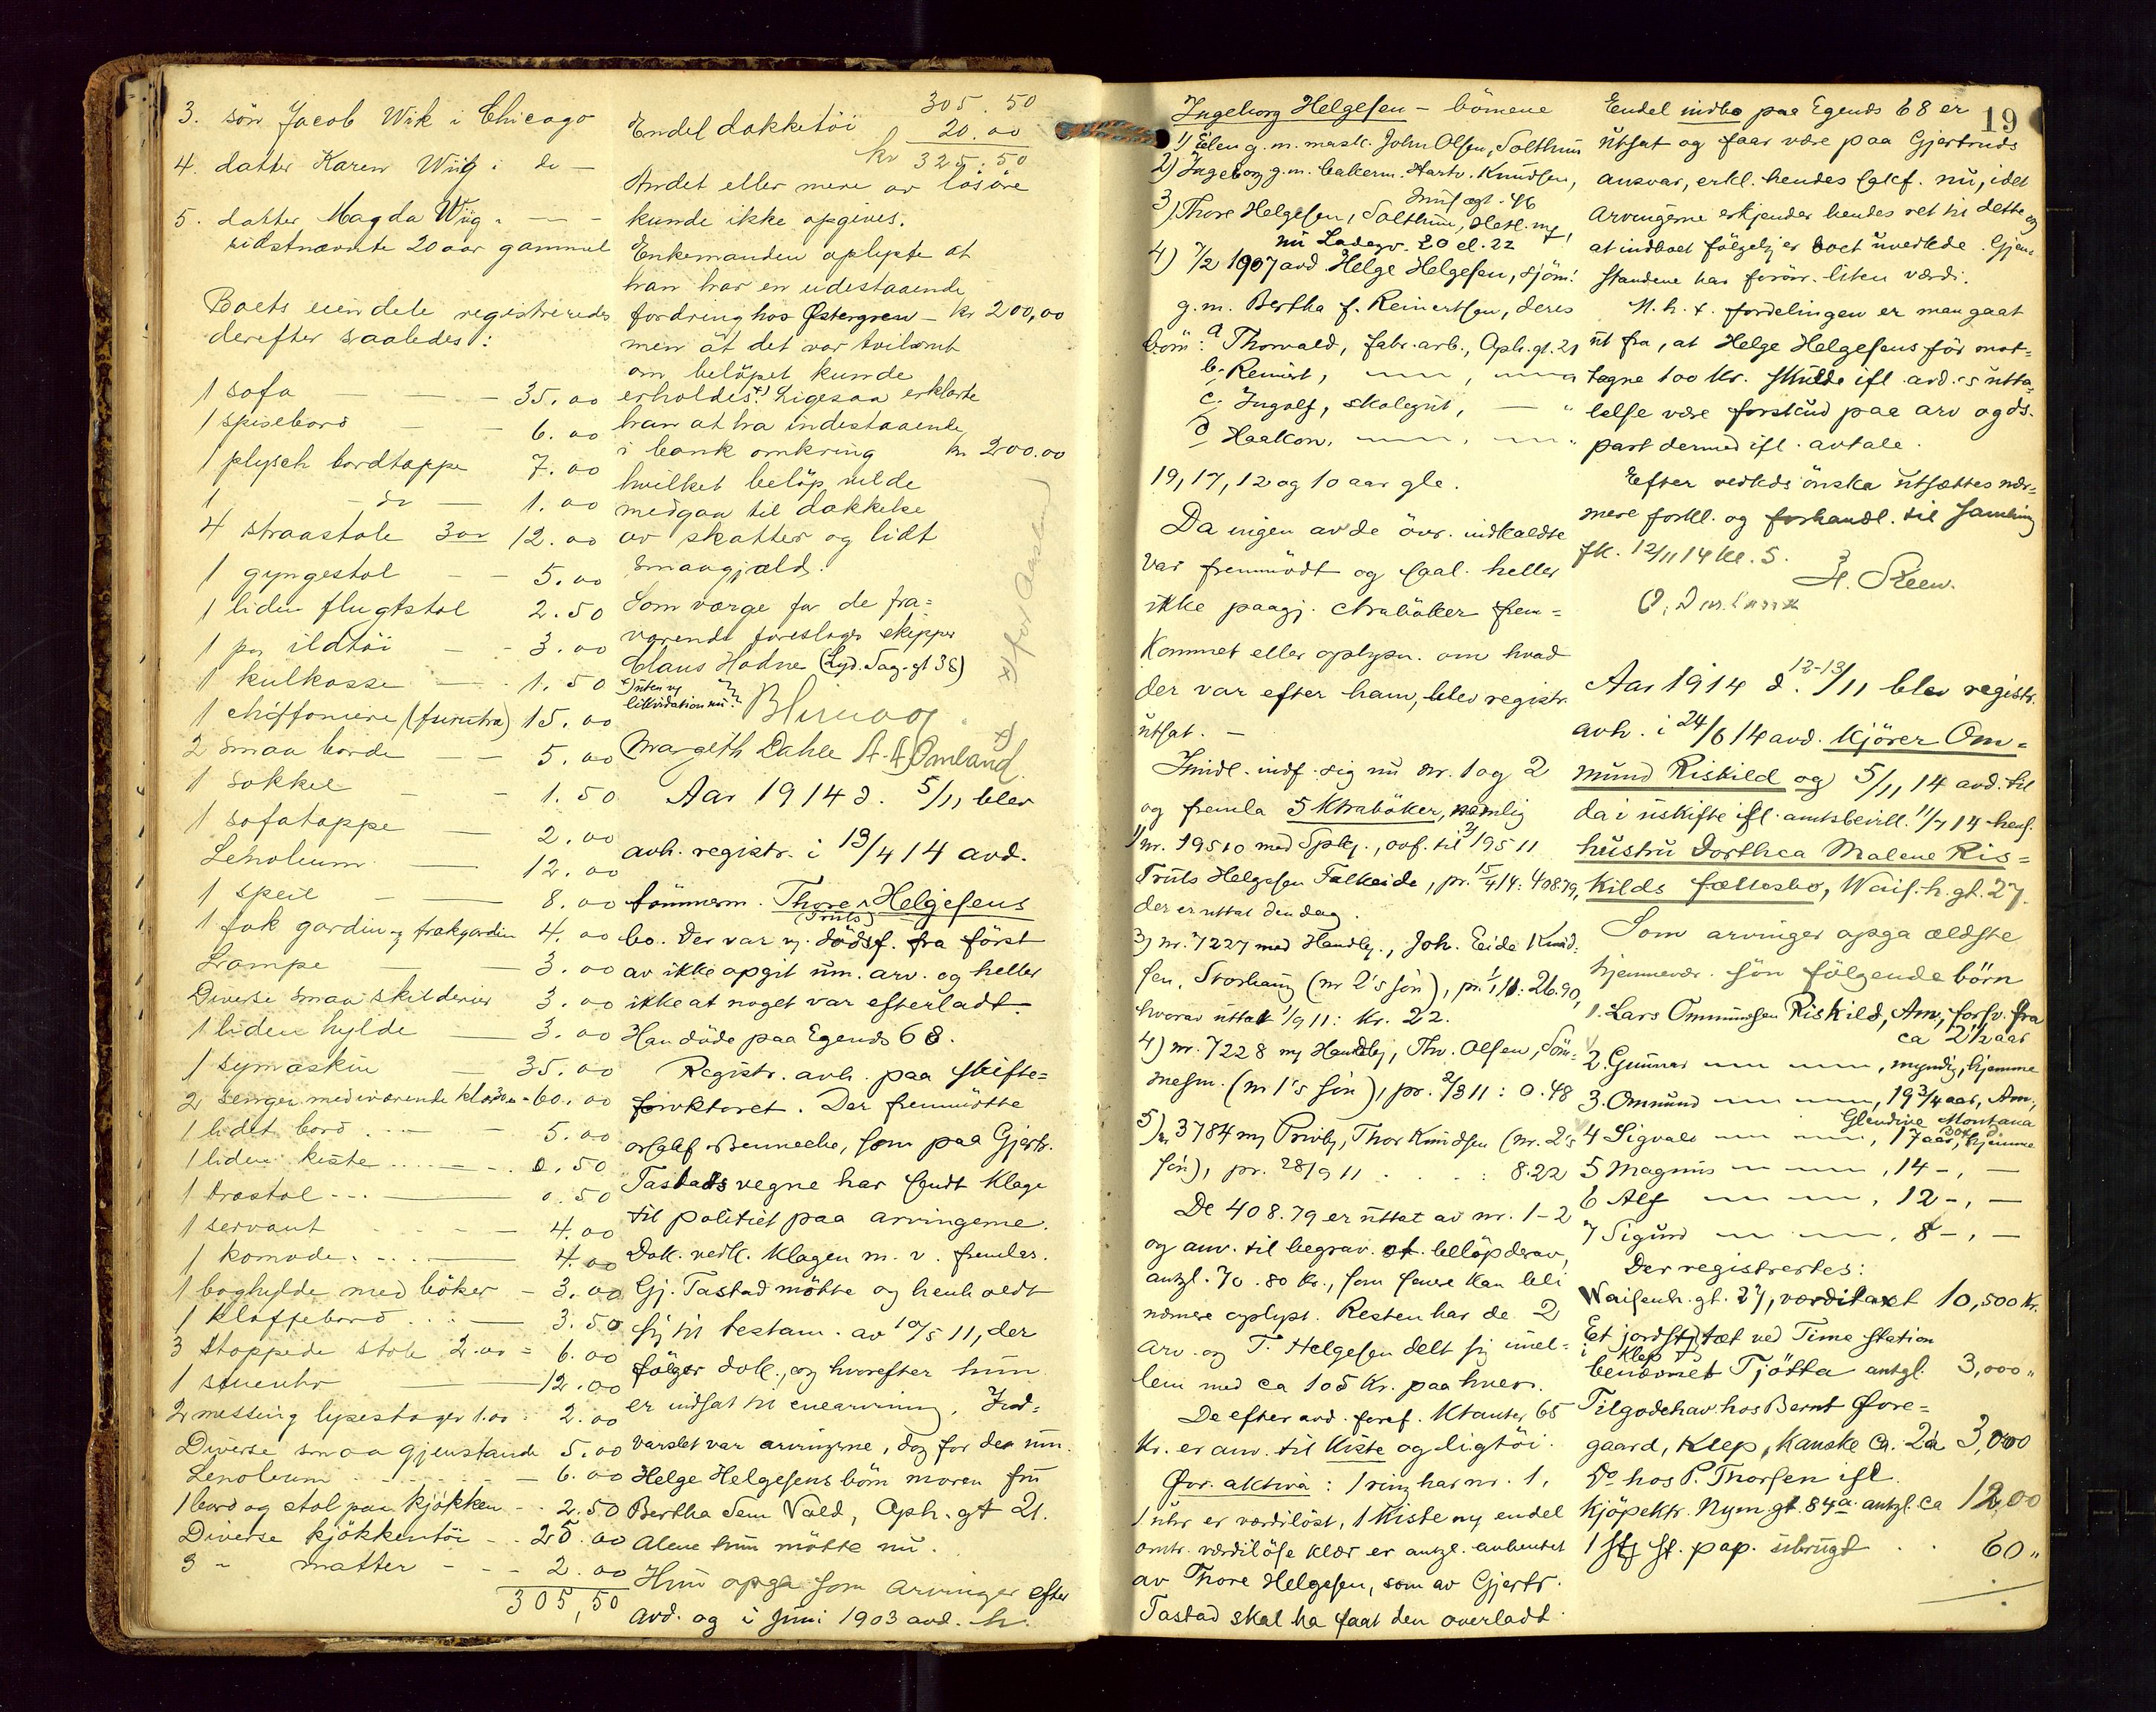 3. sön Jacob Wiik i Chicago
4. datter Karen Wiig i do —
5. datter Magda Wiig " — —
sidstnævnte 20 aar gammel
Boets eiendele registreredes
derefter saaledes:
1 sofa — — — 35.00
1 spisebord — — 6.00
1 plysch bordtæppe 7.00
1 — do — 1.00
4 straastole 3.00 12.00
1 gyngestol — — 5.00
1 liden flugtstol 2.50
1 par ildtöi — — 3.00
1 kulkasse — — 1.50
1 chiffoniere (furutræ) 15.00
2 smaa borde — — 5.00
1 sokkel — — 1.50
1 sofatæppe — 2.00
Lenoleum — 12.00
1 speil — — 8.00
1 fak gardin og trækgardin 4.00
Lampe — — 3.00
Diverse smaa skilderier 3.00
1 liden hylde — 3.00
1 symaskin — 35.00
2 senger med iværende klær 30.00 - 60.00
1 lidet bord . — — 5.00
1 liden kiste .... — — 0.50
1 træstol - - . — 0.50
1 servant . — — 4.00
1 komode. - . — 4.00
1 boghylde med böker — 3.00
1 klaffebord . . : — 3.50
3 stoppede stole 2.00 = 6.00
1 stueuhr — 12.00
2 messing lysestager 1.00 : 2.00
Diverse smaa gjenstande 5.00
Lenoleum - - - - - — 6.00
1 bord og stol paa kjökken - - 2.50
Diverse kjökkentöi - . 25.00
3 - matter - - - 2.00
305,50
305.50
Endel dækketöi 20.00
kr 325.50
Andet eller mere av lösöre
kunde ikke opgives.
Enkemanden oplyste at
han har en udestaaende
fordring hos Østergren — kr 200,00
men at det var tvilsomt
om belöpet kunde
erholdes. x) Ligesaa erklærte
han at ha indestaaende
i bank omkring kr 200.00
hvilket belöp vilde
medgaa til dækkelse
av skatter og lidt
smaagjæld.
Som værge for de fra=
værende foreslages skipper
Claus Hodne (Lyd. Sag. gt 38)
x) uten ny
likvidation nu.
Margith Dahle A. A. Omland x)
x) (for Aasland)
Aar 1914 d. 5/11 blev
avh. registr. i 13/4 14 avd.
tömmerm. Thore Helgesens
(Truls)
bo. Der var ny dödsf. fra först
av ikke opgit um. arv. og heller
ikke at noget var efterladt.
Han döde paa Egends 68.
Registr. avh. paa skifte=
forvktoret. Der fremmötte
orsakf. Bennecke, som paa Gjertr.
Tastads vegne har sendt klage
til politiet paa arvingerne.
Dok. vedk. klagen m. v. fremlas.
Gj. Tastad mötte og henholdt
sig til testam. av 10/5 11, der
fölger dok., og hvorefter hun
er indsat til enearving. Ind=
varslet var arvingerne, dog for de um.
Helge Helgesens börn moren fru
Bertha Sem Vald, Oph. gt 21.
Alene hun mötte nu.
Hun opga som arvinger efter
avd. og i juni 1903 avd. h.
19
Ingeborg Helgesen — börnene
1) Elen g. m. mask. John Olsen, Solthun
2) Ingeborg g. m. bakerm. Hartv. Knudsen,
Musægt. 46
3) Thore Helgesen, Solthun, Hetl. m,
nu Ladegv. 20 el. 22
4) 7/2 1907 avd. Helge Helgesen, sjöm.
g. m. Bertha f. Reinertsen, deres
börn: a Thorvald, fabr. arb., Oph. gt. 21
b. Reinert, — " —, — " —
c. Ingolf, skolegut, — "
d Haakon, — " —, — " —
19, 17, 12 og 10 aar gle.
Da ingen av de övr. indkaldte
var fremmödt og saal. heller
ikke paagj. ktraböker frem=
kommet eller oplysn. om hvad
der var efter ham, blev registr.
utsat. —
Imidl. indf. sig nu nr. 1 og 2
og fremla 5 ktraböker, nemlig
1) nr. 19510 med Spkj., ovf. til 2) 19511
Truls Helgesen Falkeide, pr. 15/4 14: 408.79,
der er uttat den dag.
3) nr. 7227 med Handlg., Joh. Eide Knud=
sen, Storhaug (nr 2's sön), pr. 1/1 11: 26.90,
hvorav uttat 1/9 11: Kr. 22.
4) nr. 7228 my Handlg, Thv. Olsen, Söm=
mesm. (nr 1's sön), pr. 2/3 11: 0.48
5) nr 3784 my Privb., Thor Knudsen (nr. 2's
sön), pr. 28/9 11 . . . : 8.22
De 408.79 er uttat av nr. 1–2
og anv. til begrav. et belöp derav,
antgl. 70.80 kr., som senere kan bli
nærmere oplyst. Resten har de 2
arv. og T. Helgesen delt sig imel=
lem med ca 105 Kr. paa hver.
De efter avd. foref. ktanter 65
Kr. er anv. til kiste og ligtöi.
Övr. aktiva: 1 ring har nr. 1,
1 uhr er værdilöst, 1 kiste my endel
omtr. værdilöse klær er antgl. avhentet
av Thore Helgesen, som av Gjertr.
Tastad skal ha faat den overladt.
Endel indbo paa Egends 68 er
utsat og faar være paa Gjertruds
ansvar, erkl. hendes sakf. nu, idet
arvingerne erkjender hendes ret til dette og
at indboet fölgelig er boet uvedkde. Gjen=
standene har forövr. liten værdi.
M. h. t. fordelingen er man gaat
ut fra, at Helge Helgesens för mot=
tagne 100 Kr. skulde ifl. avd.s utta=
lelse være forskud paa arv og ds.
part dermed ifl. avtale.
Efter vedkds önske utsættes nær=
mere forkl. og forhandl. til samling
sk. 12/11 14 kl. 5.
H. Steen.
Aar 1914 d. 12-13/11 blev registr.
avh. i 24/6 14 avd. kjörer Om=
mund Riskild og 5/11 14 avd. til
da i uskifte ifl. amtsbevill. 11/7 14 hens.
hustru Dorthea Malene Ris=
kilds fællesbo, Wais.h.gt. 27.
Som arvinger opga ældste
hjemmevær. sön fölgende börn
1. Lars Ommundsen Riskild, Am, forsv. fra
ca 2½ aar
2. Gunnar — " — — " —, myndig, hjemme
3. Ommund — " — — " —, 19¾ aar, Am.,
Glendive Montana
4 Sigvald — " — — " —, 17 aar, hjemme
5 Magnus — " — — " —, 14 –, —
6 Alf — " — — " —, 12 –, —
7 Sigurd — " — — " —, 8 –, —
Der registrertes:
Waisenh. gt. 27, værditaxt 10,500 Kr.
Et jordstk tæt ved Time station
i Klep
benævnet Tjötta antgl. 3,000 "
Tilgodehav. hos Bernt Öore=
gaard, Klep, kanske ca. 2 à 3,000
Do hos P. Thorsen ifl.
kjöpektr. Nym.gt. 84a. antgl. ca 1200
1 stj st. pap. ubrugt . . 60 "